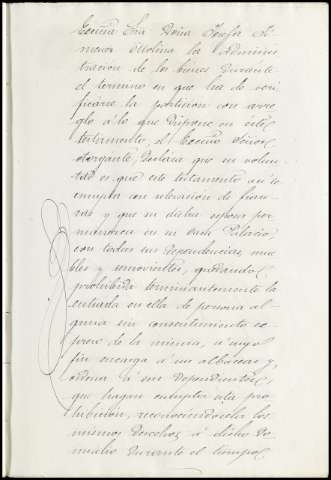 Excma Sra Doña Josefa Ji-
menez Molina la Adminis
tracion de los bienes durante
el termino en que ha de veri
ficarse la particion con arre
glo á lo que dispone en este
testamento. El Excmo Señor
otorgante, declara que su volun
tad es que este testamento así se
cumpla con relevacion de fian
zas y que su dicha esposa per
manezca en su Casa Palacio
con todas sus dependencias, mue
bles y semovientes, quedando
prohibida terminantemente la
entrada en ella de persona al
guna sin consentimiento es
preso de la misma, á cuyo
fin encarga á sus albaceas y
ordena á sus dependientes,
que hagan cumplir esta pro
hibicion, reconociendole los
mismos derechos á dicho do
micilio durante el tiempo